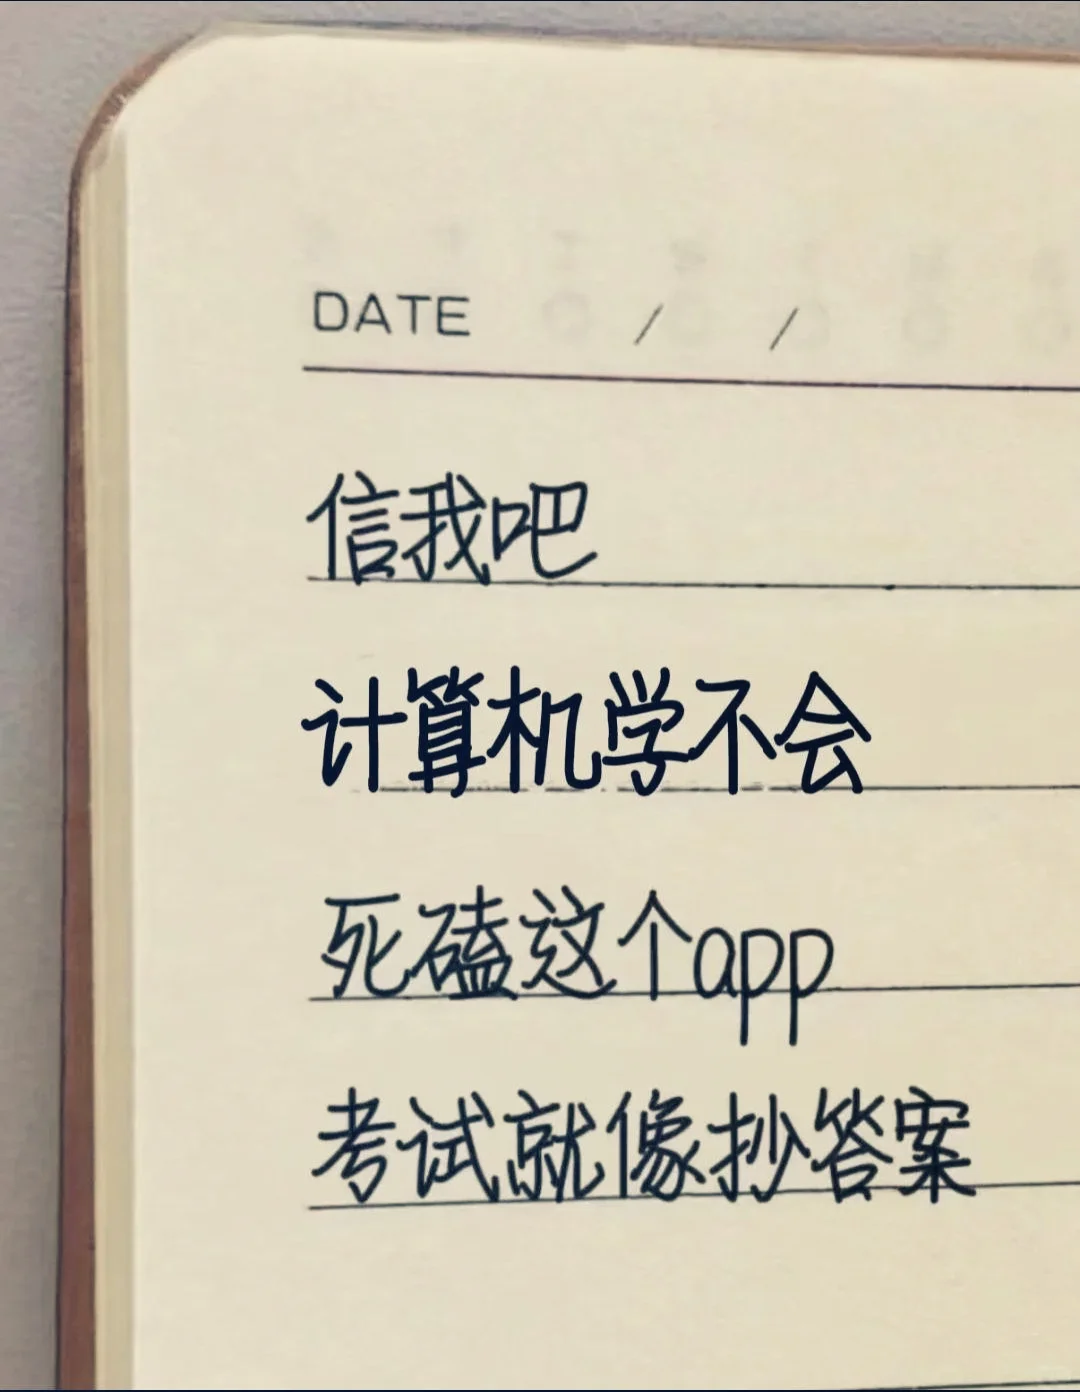 DATE / /
信我吧
计算机学不会
死磕这个app
考试就像抄答案